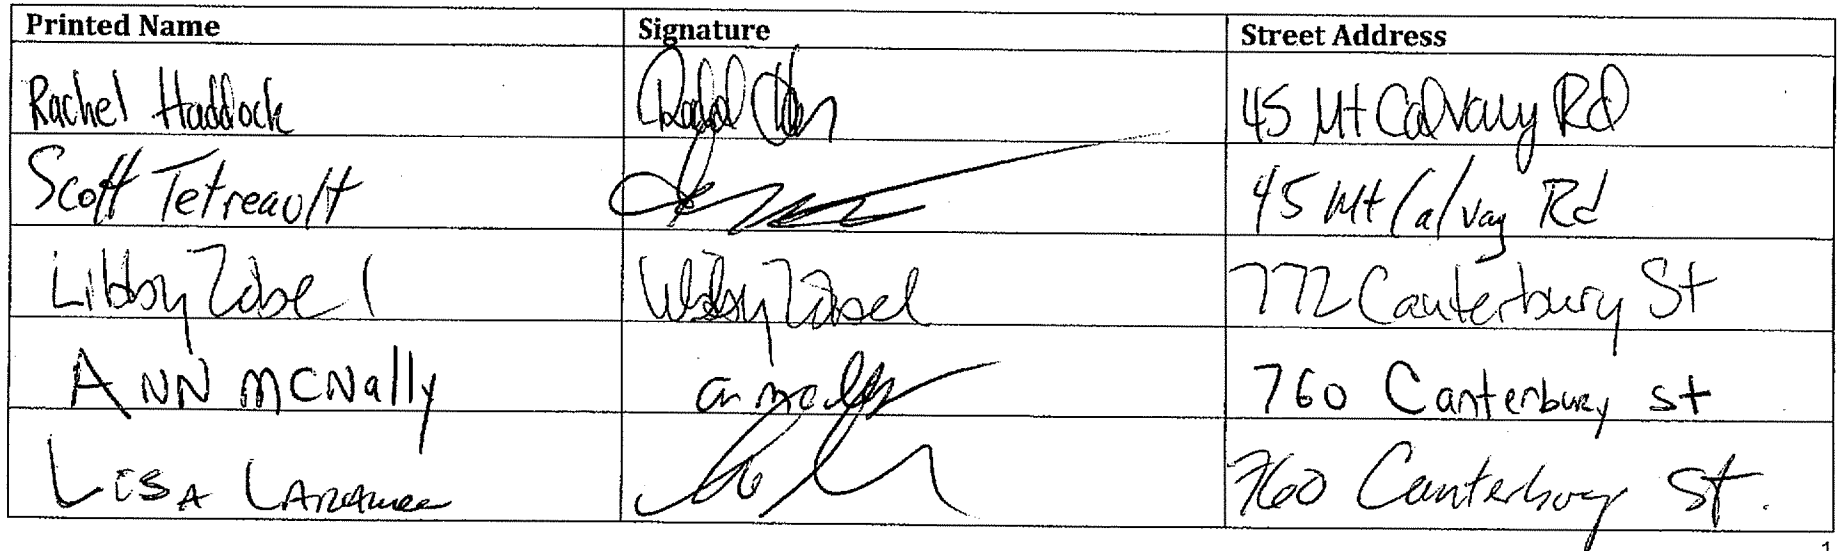 Printed Name Signature Street Address
Rachel Haddock 45 Mt Calvary Rd
Scott Tetreault 45 Mt Calvary Rd
Libby Zabel Libby Zabel 772 Canterbury St
ANN MCNally 760 Canterbury st
LISA LARAMEE 760 Canterbury St.
1